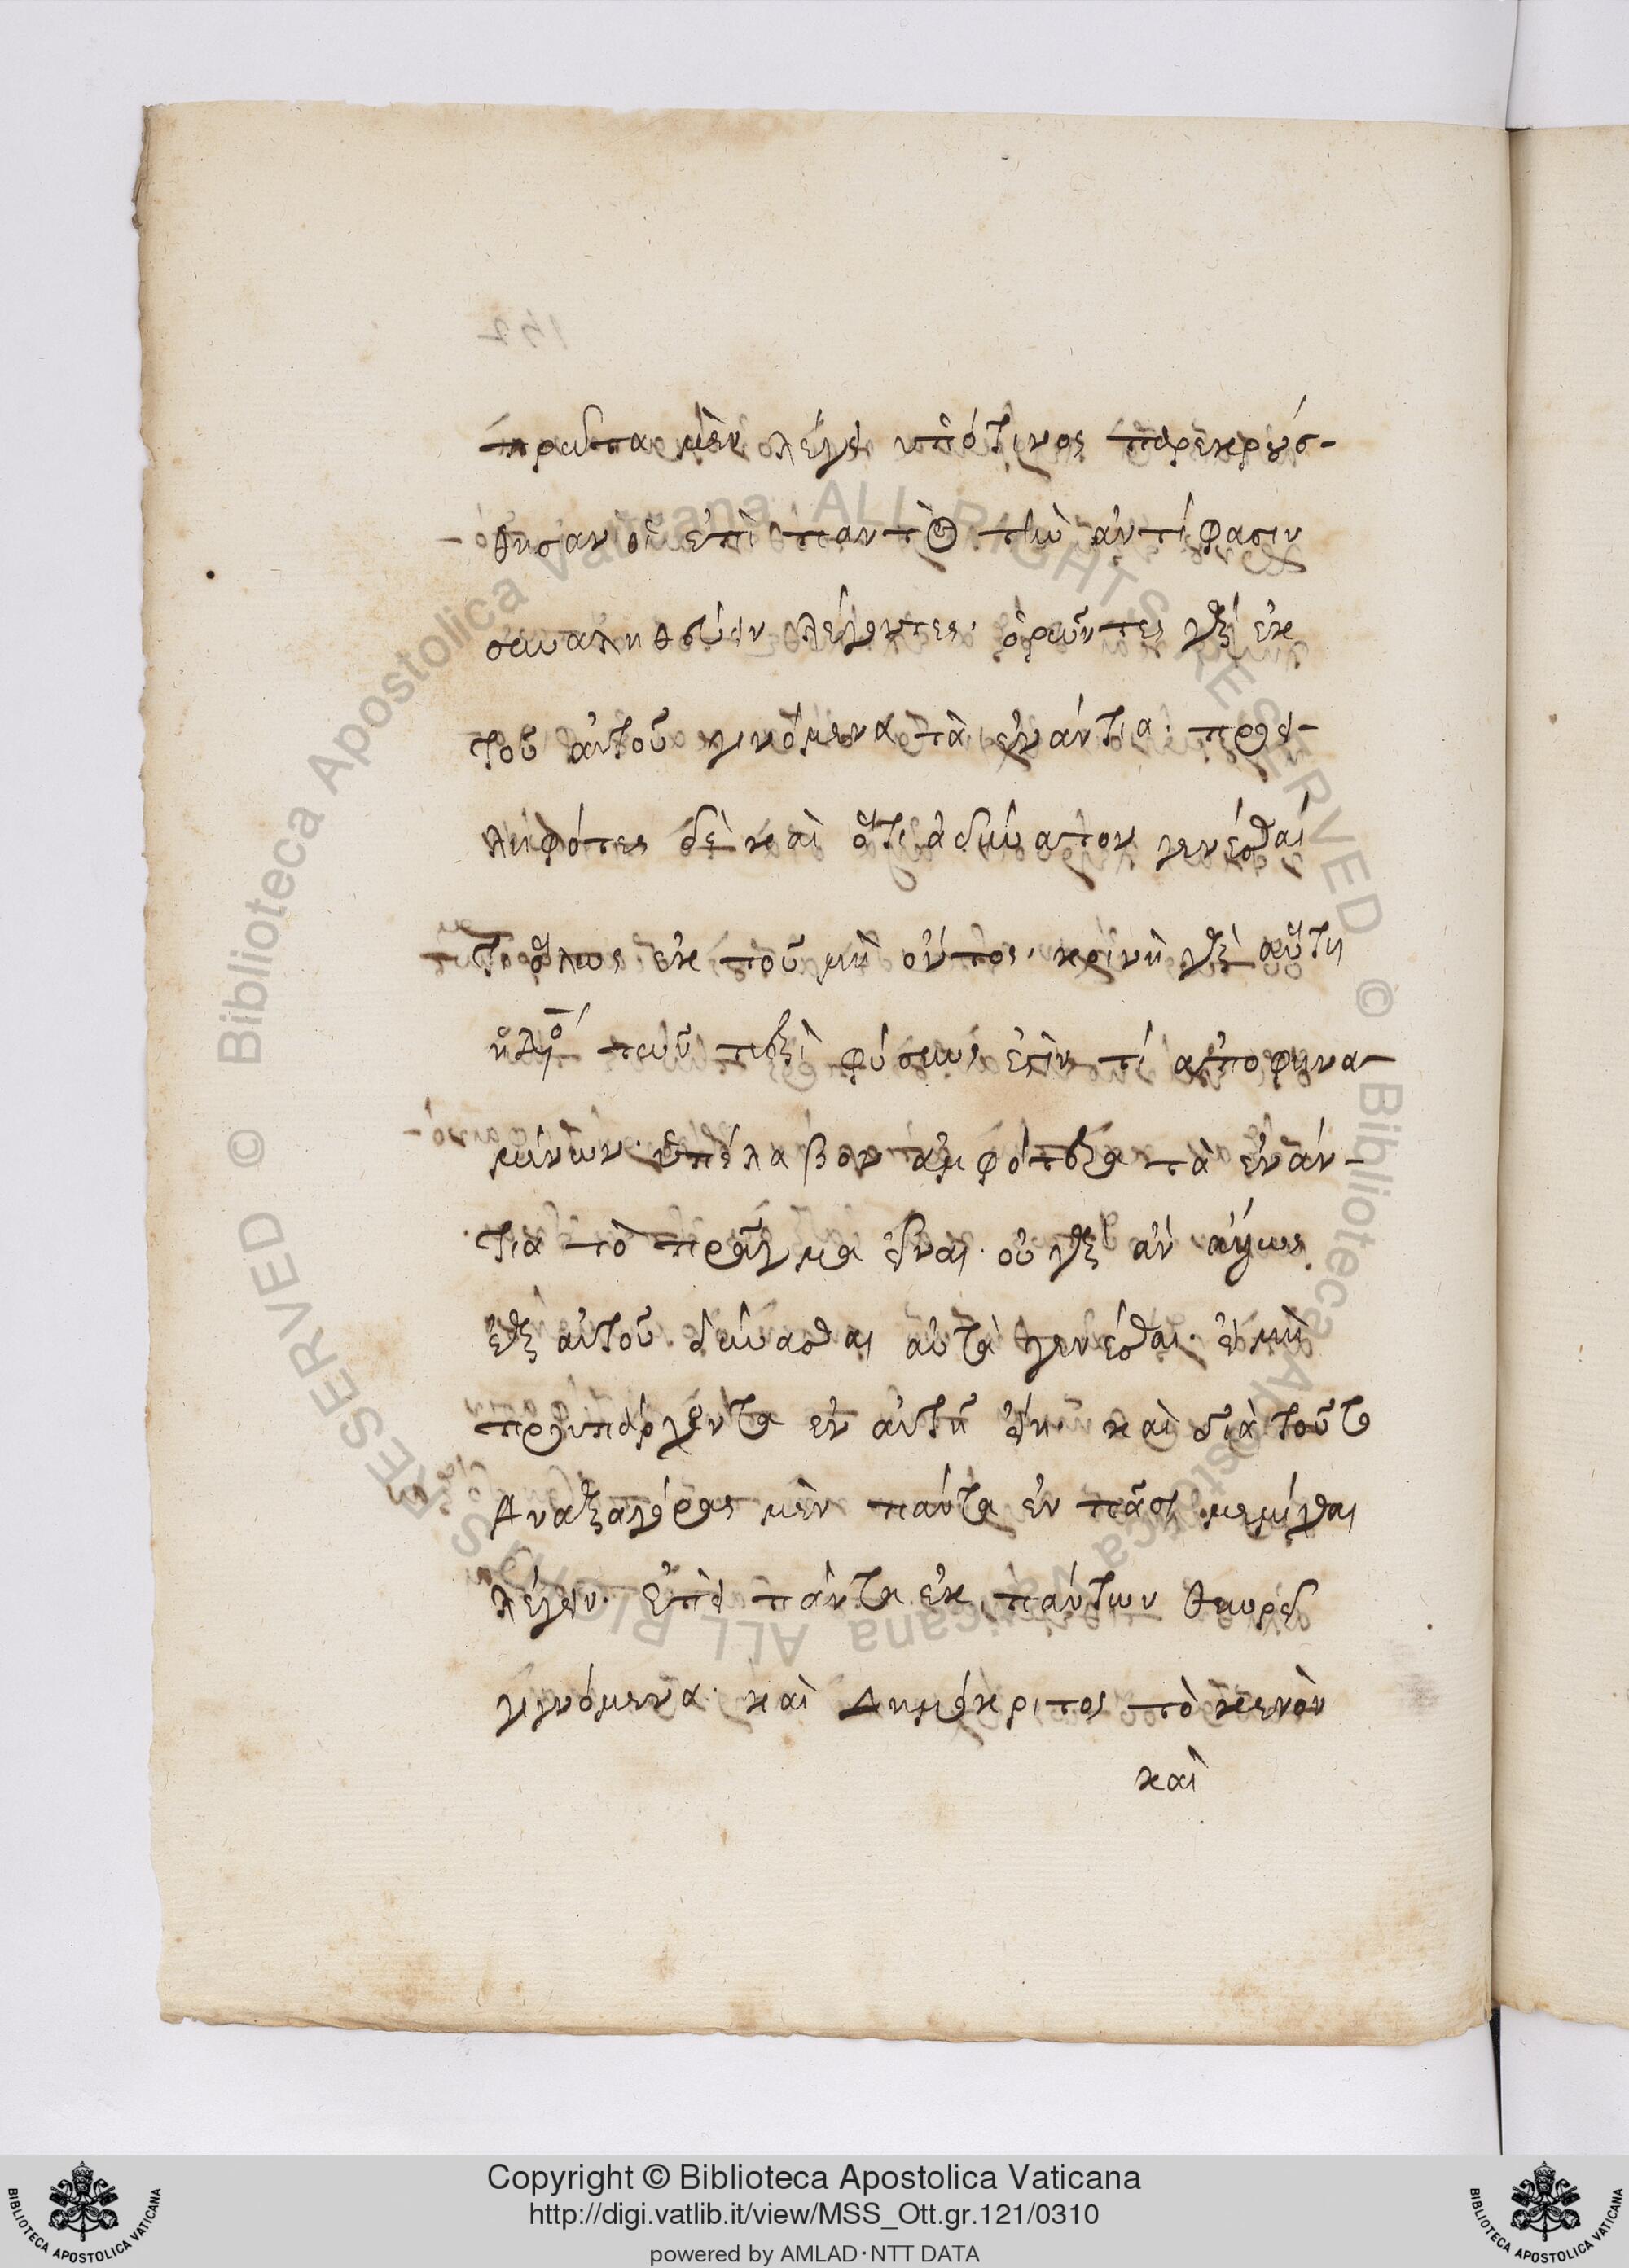 πρῶτα μὲν λέγει ὑπό τινος παρεκρούσ-
θησαν οἱ ἐπὶ παντὸς τὴν ἀντίφασιν
συναληθεύειν λέγοντες. ὁρῶντες γὰρ ἐκ
τοῦ αὐτοῦ γινόμενα τὰ ἐναντία. προει-
ληφότες δὲ καὶ ὅτι ἀδύνατον γενέσθαι
τι ὅλως ἐκ τοῦ μὴ ὄντος. κοινὴ γὰρ αὕτη
τῶν περὶ φύσεώς ἐστίν τί ἀποφηνα-
μένων. ὑπέλαβον ἀμφότερα τὰ ἐναν-
τία τὸ πρᾶγμα εἶναι. οὐ γὰρ ἂν ἄλλως
ἐξ αὐτοῦ δύνασθαι αὐτὰ γενέσθαι. εἰ μὴ
προυπάρχοντα ἐν αὐτῷ εἴη. καὶ διὰ τοῦτο
Ἀναξαγόρας μὲν πάντα ἐν πᾶσι μεμίχθαι
λέγειν. ἐπεὶ πάντα ἐκ πάντων θεωρεῖ
γιγνόμενα. καὶ Δημόκριτος τὸ κενὸν
καὶ
Copyright © Biblioteca Apostolica Vaticana
http://digi.vatlib.it/view/MSS_Ott.gr.121/0310
powered by AMLAD·NTT DATA
BIBLIOTECA APOSTOLICA VATICANA
BIBLIOTECA APOSTOLICA VATICANA